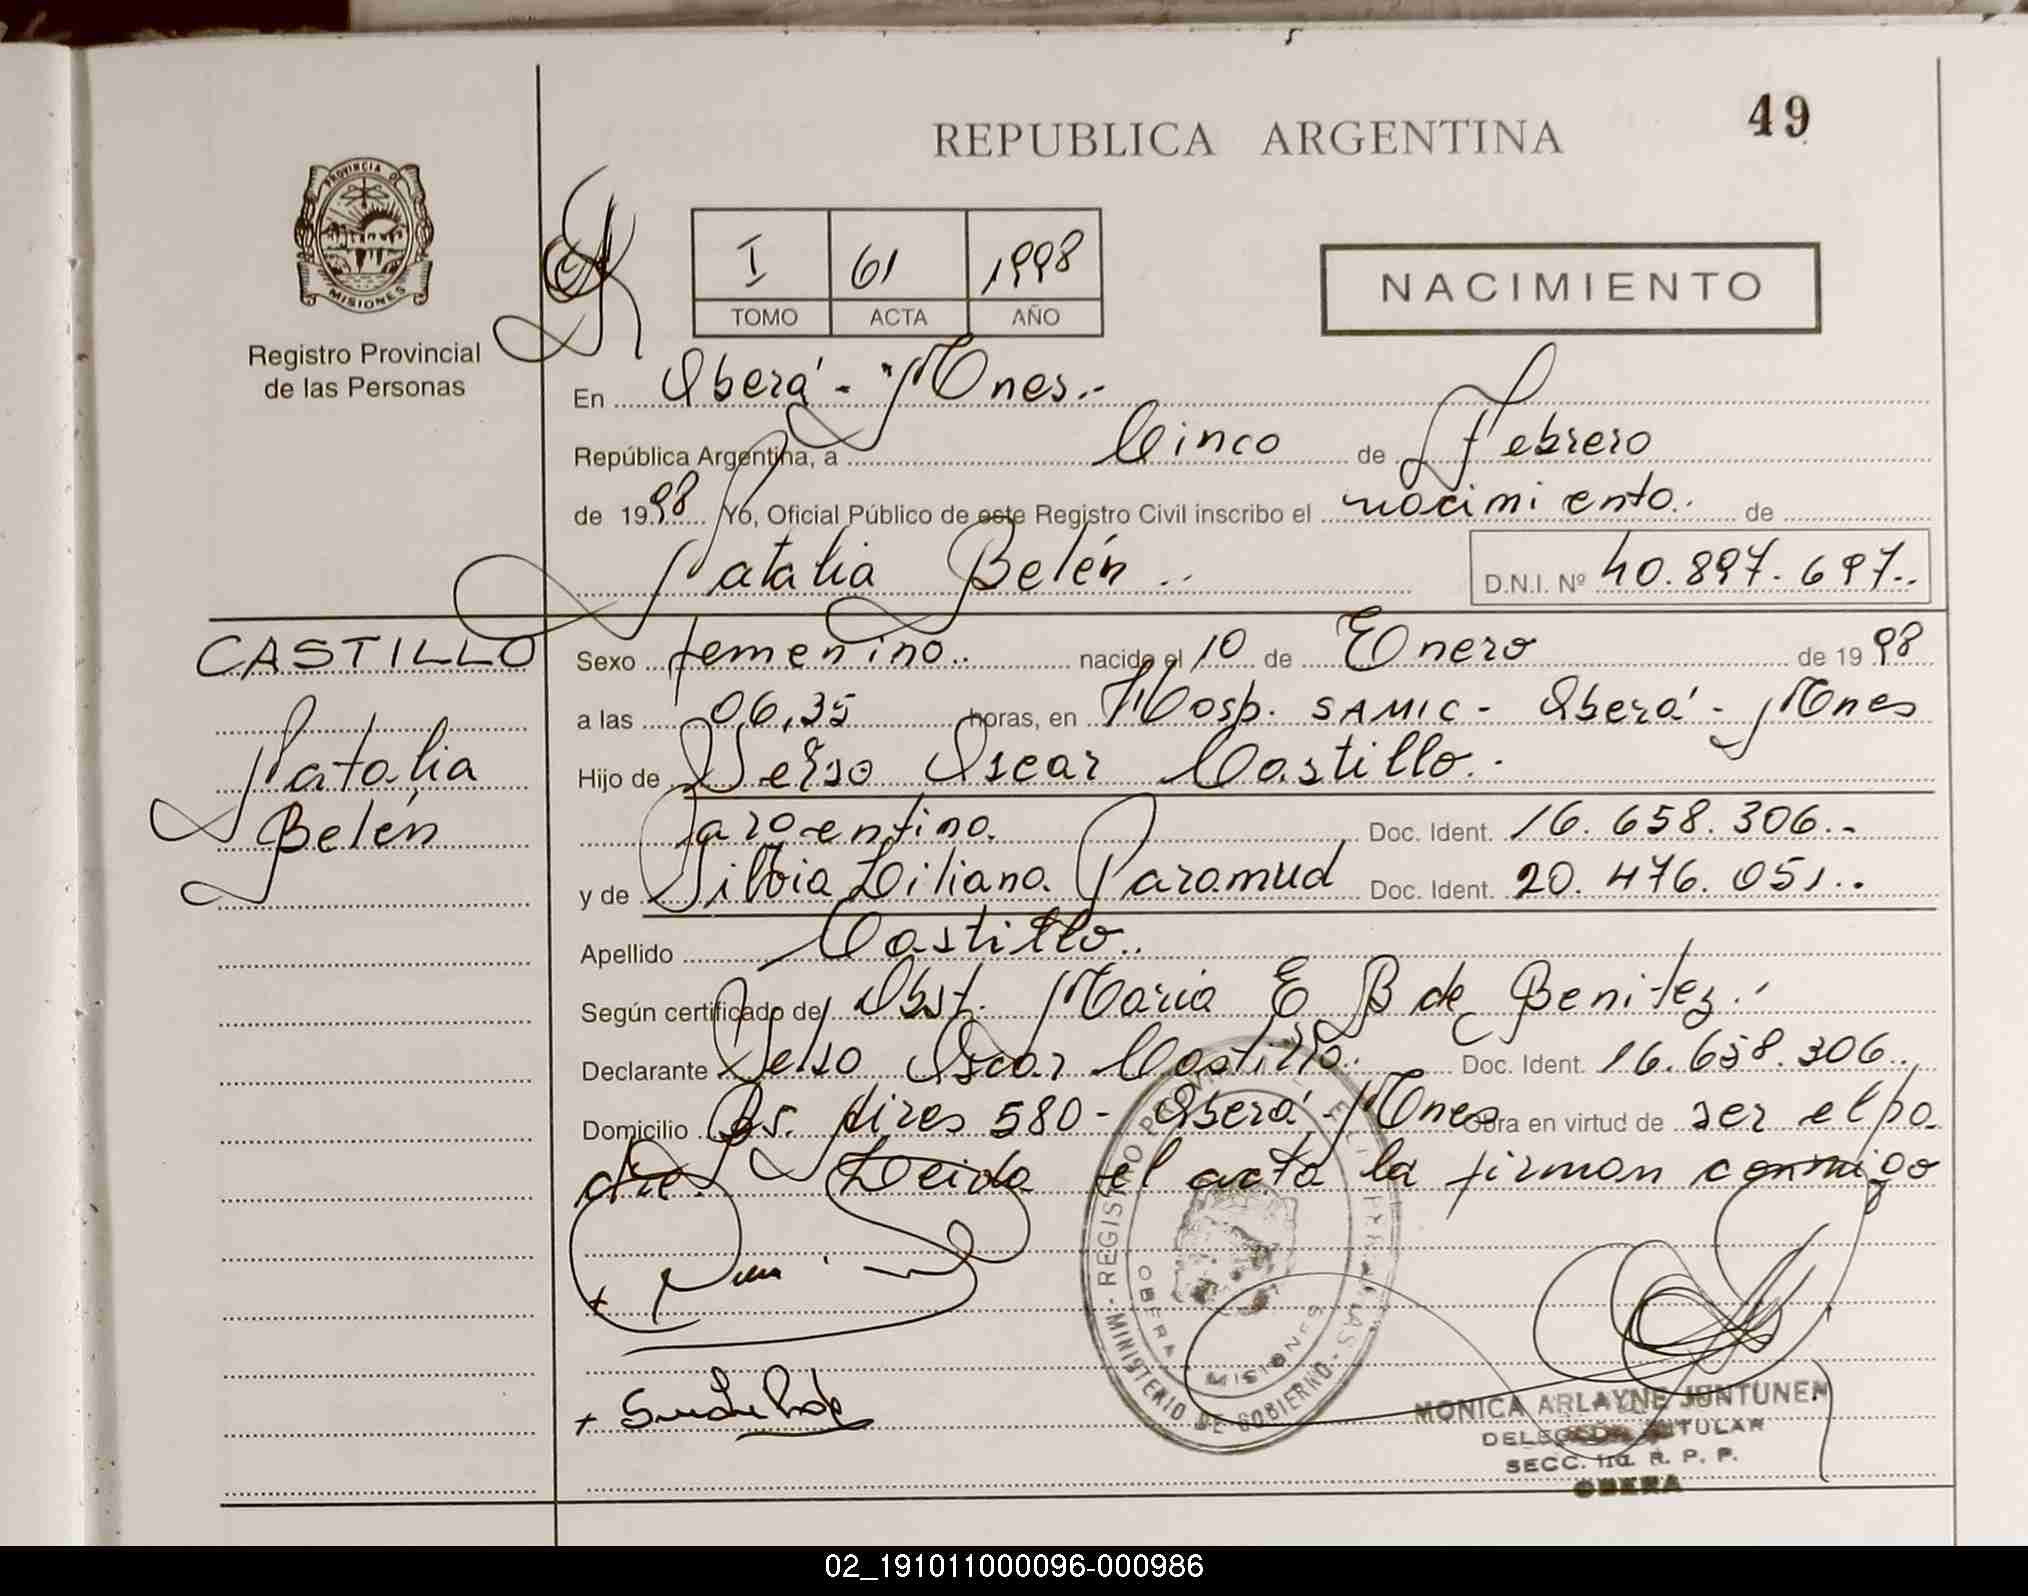 49
REPUBLICA ARGENTINA
PROVINCIA DE
MISIONES
Registro Provincial
de las Personas
I 61 1998
TOMO ACTA AÑO
NACIMIENTO
En Oberá - Mnes.-
República Argentina, a Cinco de Febrero
de 1998 Yo, Oficial Público de este Registro Civil inscribo el nacimiento de
Natalia Belén D.N.I. Nº 40.897.697
CASTILLO
Natalia
Belén
Sexo femenino nacido el 10 de Enero de 1998
a las 06,35 horas, en Hosp. SAMIC - Oberá - Mnes
Hijo de Oscar Castillo
argentino. Doc. Ident. 16.658.306
y de Silvia Liliana Paramud Doc. Ident. 20.476.051
Apellido Castillo
Según certificado de Obst. María E B de Benitez
Declarante Oscar Castillo Doc. Ident. 16.658.306
Domicilio Bs. Aires 580 - Oberá - Mnes Obra en virtud de ser el pa
dre. Leida el acta la firman conmigo
REGISTRO PROVINCIAL DE LAS PERSONAS
MINISTERIO DE GOBIERNO
OBERA MISIONES
MONICA ARLAYNE JUNTUNEN
DELEGADA TITULAR
SECC. 1ra. R. P. P.
OBERA
02_191011000096-000986